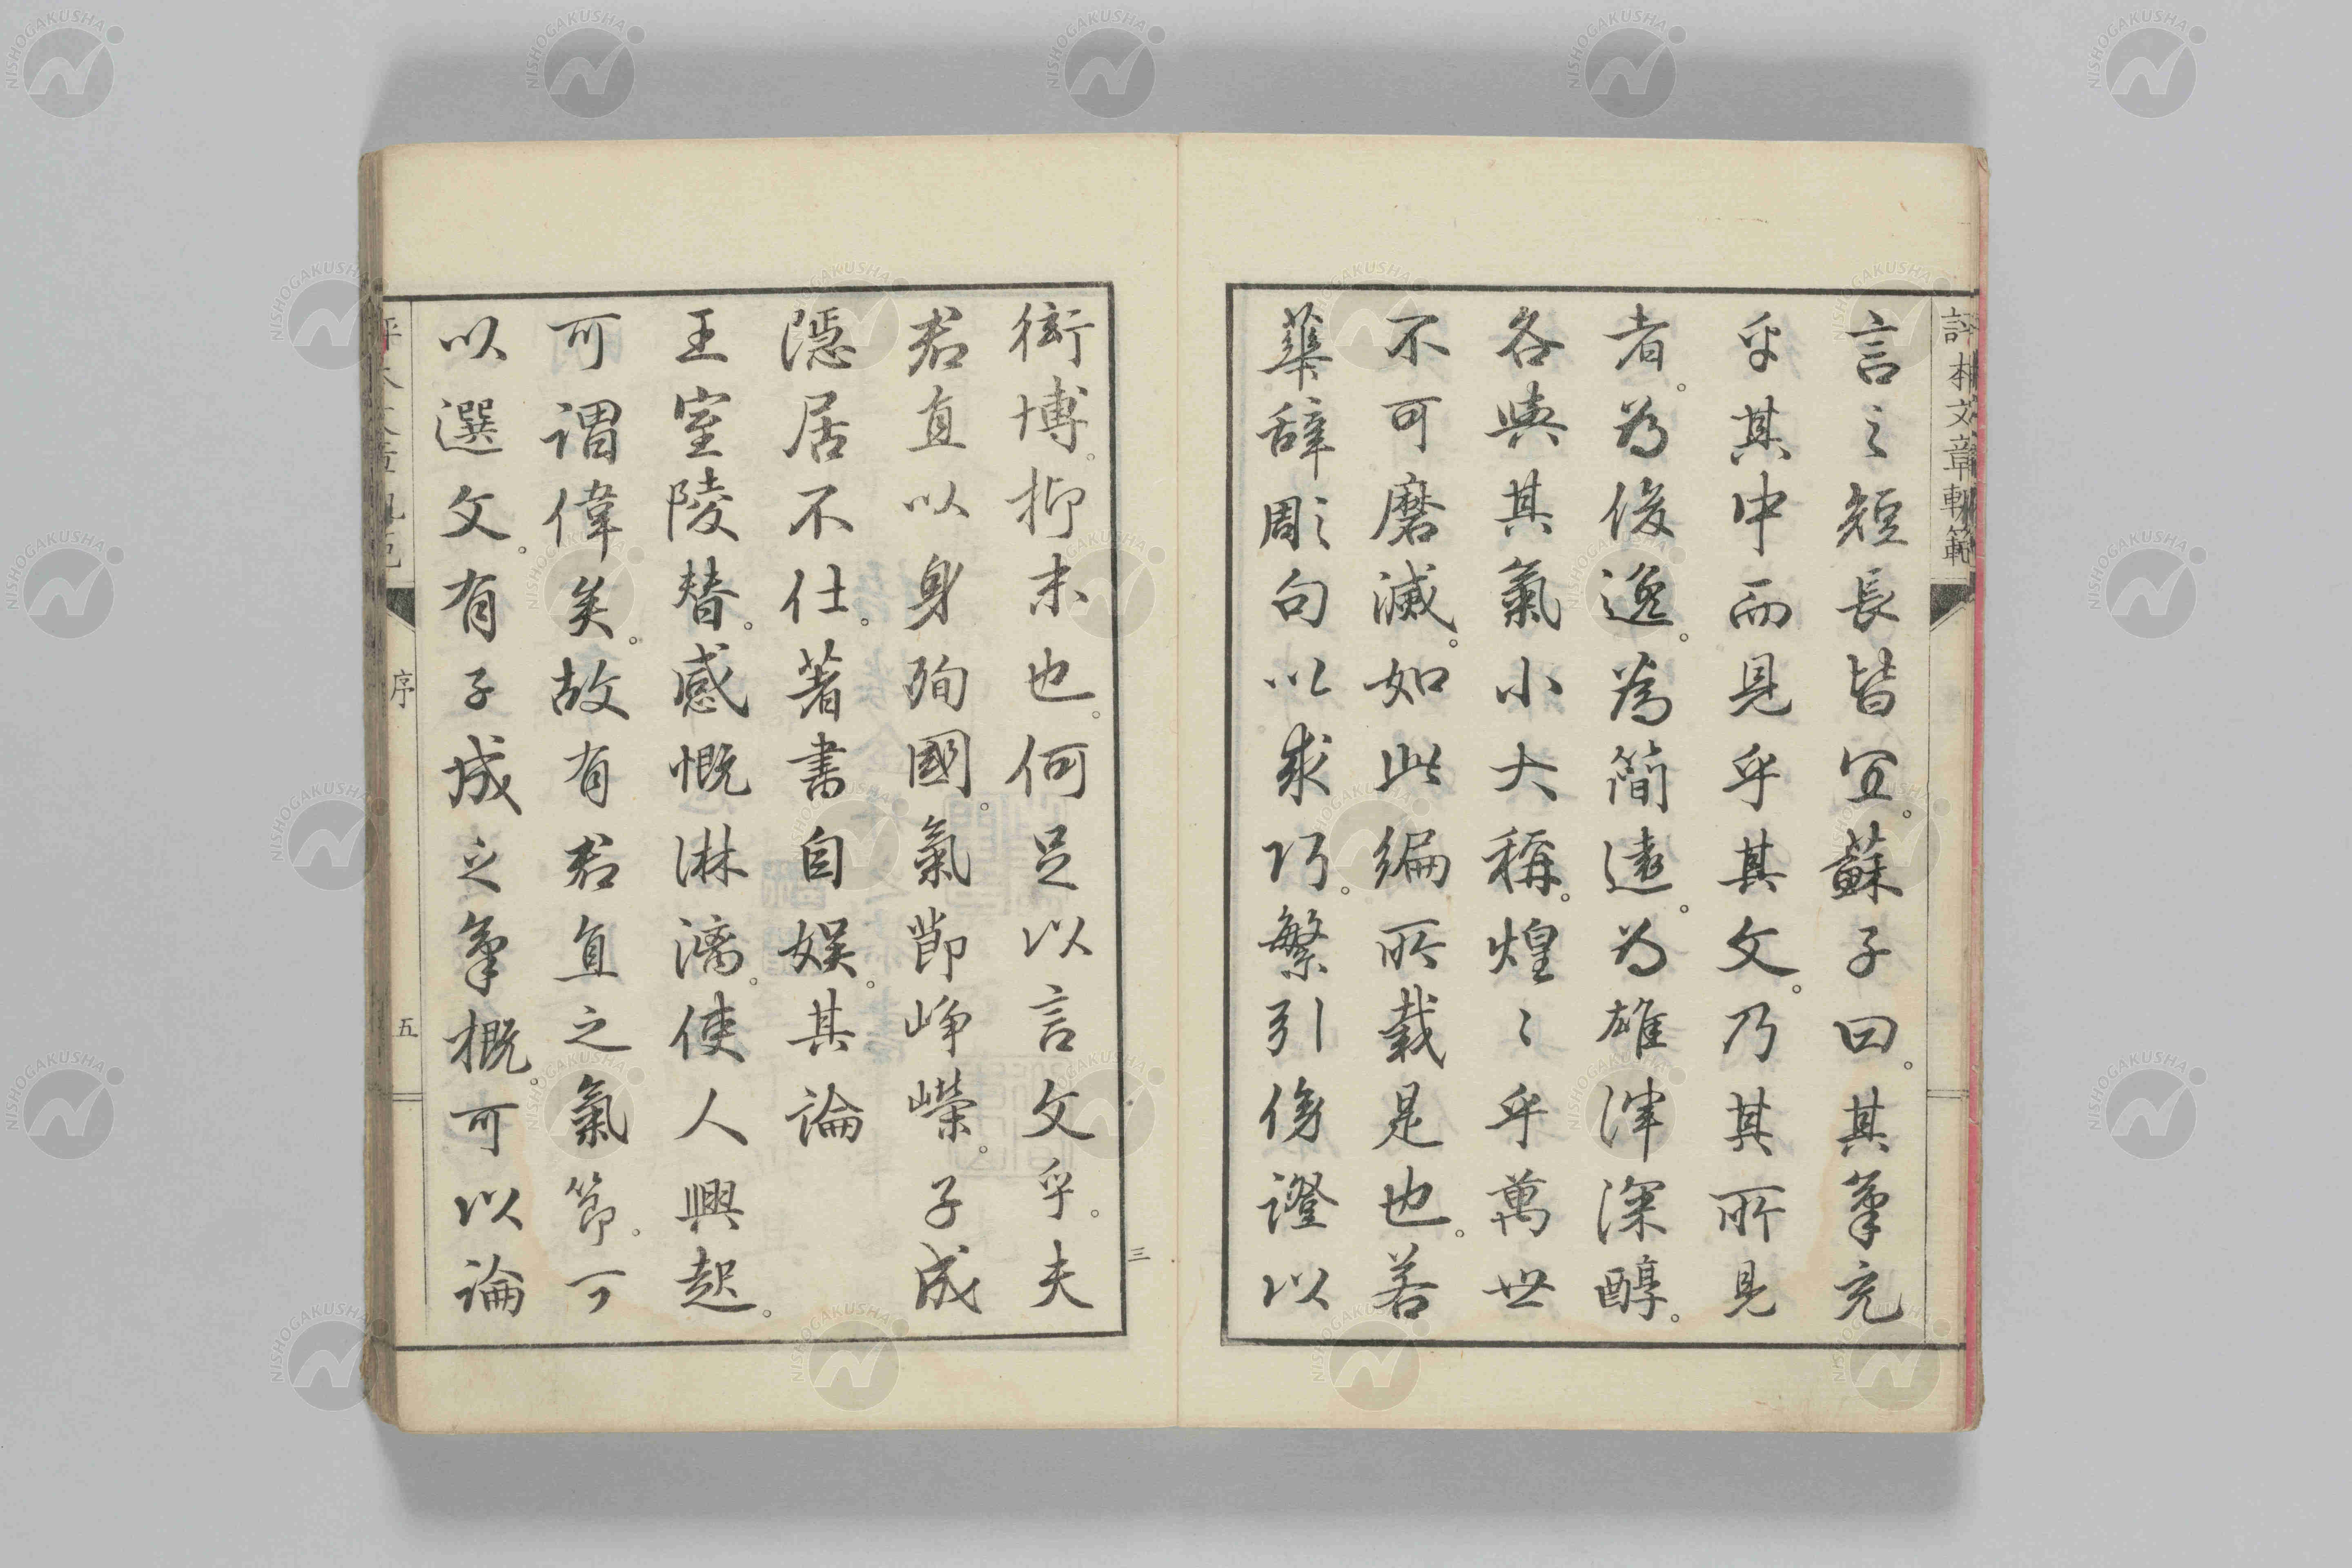 評本文章軌範
言之短長皆宜。蘇子曰。其氣充
乎其中而見乎其文。乃其所見
者。為俊逸。為簡遠。為雄渾深醇。
各與其氣小大稱。煌〻乎萬世
不可磨滅。如此編所載是也。若
華辭彫句以求巧。繁引傍證以
衒博。抑末也。何足以言文乎。夫
君直以身殉國。氣節崢嶸。子成
隱居不仕。著書自娛。其論
王室陵替。感慨淋漓。使人興起。
可謂偉矣。故有君直之氣節。可
以選文。有子成之氣概。可以論
序
五
三
NISHOGAKUSHA